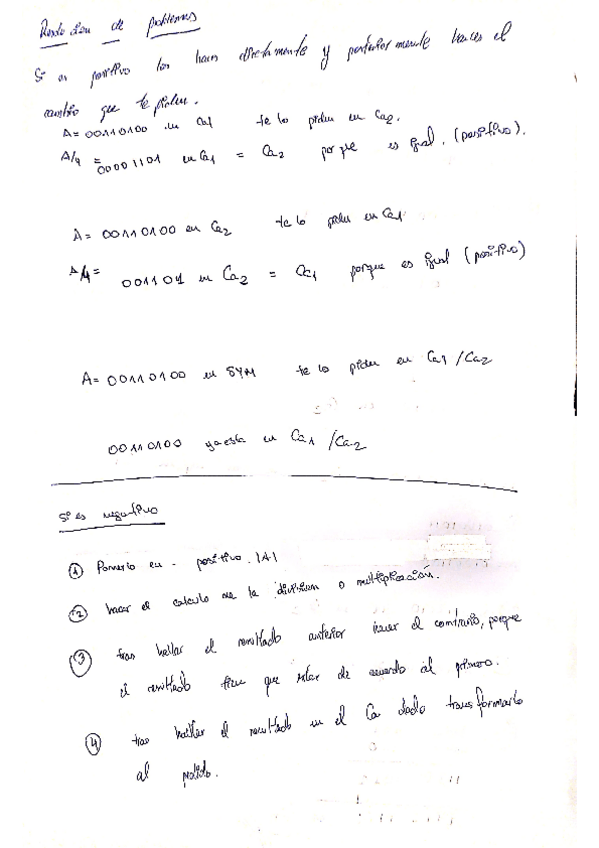 Resolución de problemas
Si es positivo los haces directamente y posteriormente haces el
cambio que te piden.
A= 00110100 en Ca1 te lo piden en Ca2.
A/4 = 00001101 en Ca1 = Ca2 porque es igual. (positivo).
A= 00110100 en Ca2 te lo piden en Ca1
A/4= 001101 en Ca2 = Ca1 porque es igual (positivo)
A= 00110100 en SYM te lo piden en Ca1 /Ca2
00110100 ya esta en Ca1 /Ca2
Si es negativo
① Ponerlo en positivo. |A|
② hacer el calculo de la division o multiplicación.
③ tras hallar el resultado anterior hacer el contrario, porque
el resultado tiene que estar de acuerdo al primero.
④ tras hallar el resultado en el Ca dado transformarlo
al pedido.